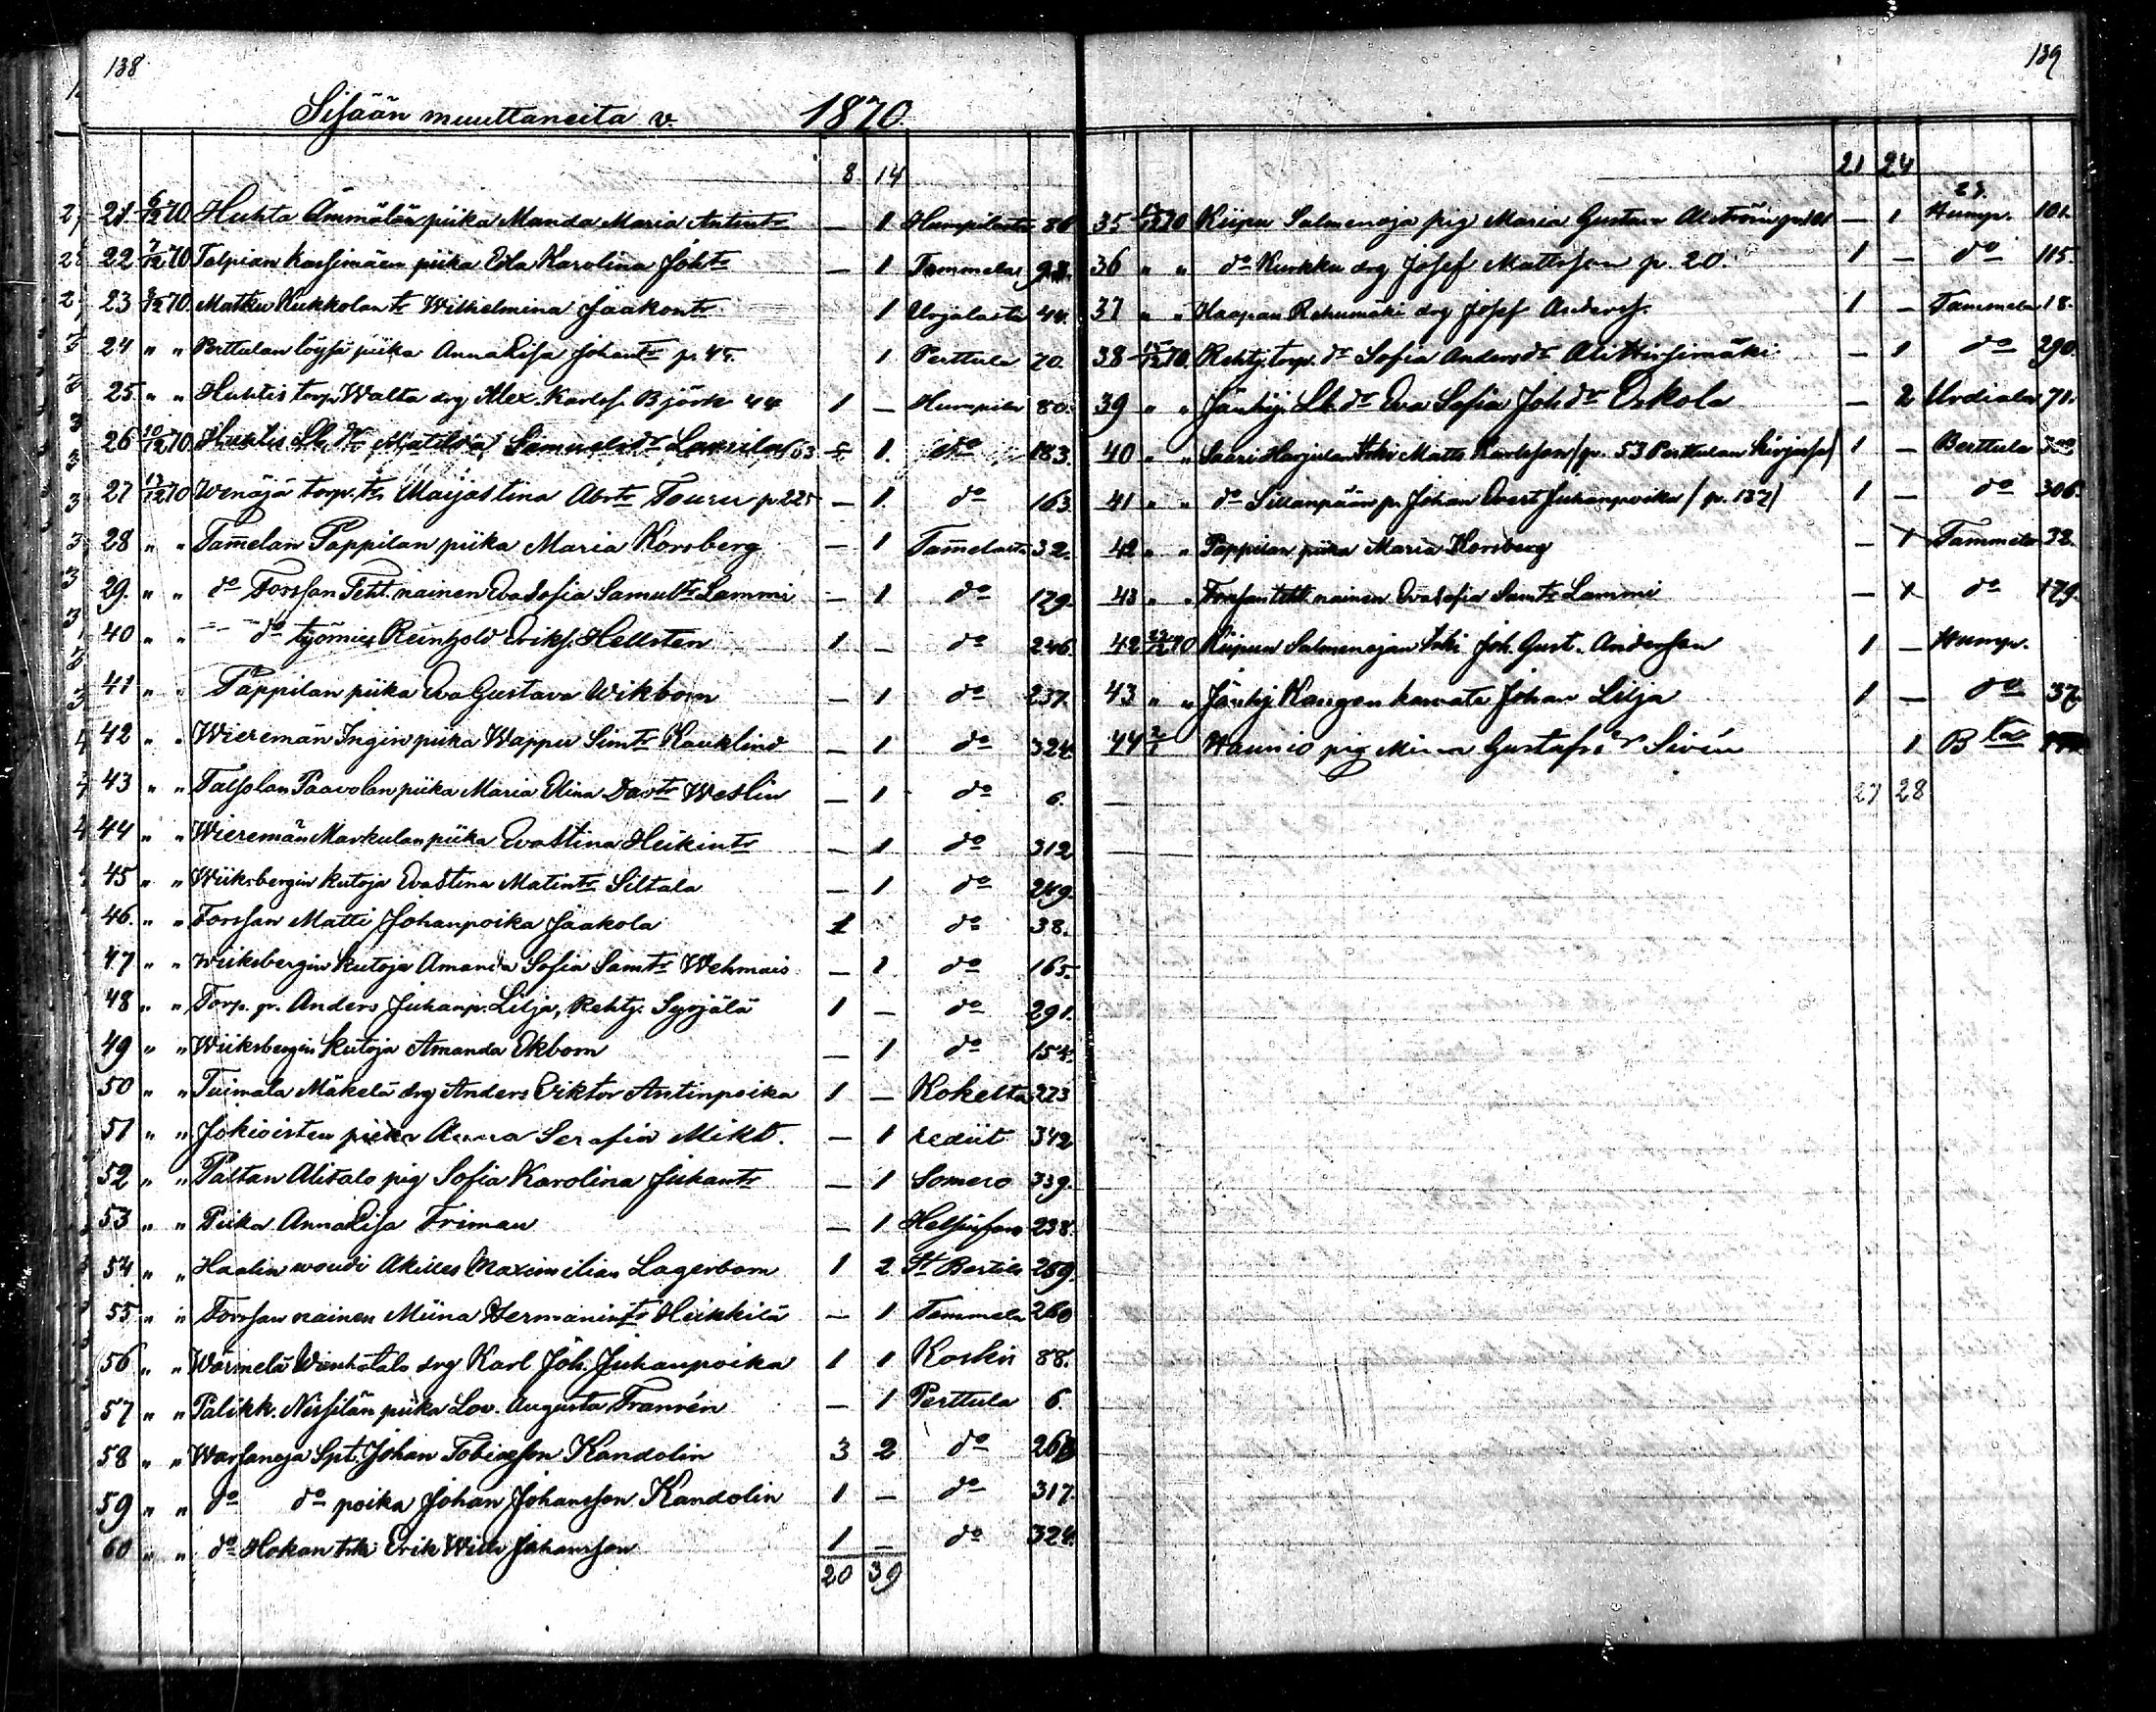 138
Sisään muuttaneita v. 1870.
8 14
21 6/12 70 Huhta Ämmälän piika Manda Maria Antintr — 1 Humpilasta 80
22 7/12 70 Talpian Kassimäen piika Eda Karolina Johtr — 1 Tammelas
23 9/12 70. Matku Kukkolan tr Wilhelmina Jaakontr 1 Urjalasta 44.
24 " " Perttulan löysä piika Anna Lisa Johantr p. 45. 1 Perttula 20.
25 " " Huhtis torp. Walta drg Alex. Karlss. Björk 44 1 — Humpila 80.
26 10/12 70 Huhtis Lb. dr Matilda Samuelsdr Laurila 1. do 183.
27 70 Wenäjä torp. tr Maijastina Abrtr Touru p. 225 — 1. do 163
28 " " Tam̄elan Pappilan piika Maria Korsberg — 1 Tam̄elasta 32.
29. " " do Forssan Teht. nainen Eva Sofia Samultr Lammi — 1 do 179.
40 " " do työmies Reinhold Eriks. Hellsten 1 — do 246.
41 " " Pappilan piika Eva Gustava Wikbom — 1 do 237.
42 " " Wieremän Ingin piika Wappu Simtr Kauklind — 1 do 324.
43 " " Talsolan Paavolan piika Maria Elina Davtr Weslin — 1 do 6.
44 " " Wieremän Markulan piika Eva Stina Heikintr — 1 do 312
45 " " Wiiksbergin kutoja Eva Stina Matintr Siltala — 1 do 249.
46. " " Forssan Matti Johanpoika Jaakola 1 do 38.
47 " " Wiiksbergin kutoja Amanda Sofia Samtr Wehmais — 1 do 165.
48 " " Torp. p. Anders Juhanp. Lilja, Rehtj. Syrjälä 1 — do 291.
49 " " Wiiksbergin kutoja Amanda Ekbom — 1 do 154.
50 " " Tuimala Mäkelä drg Anders Viktor Antinpoika 1 — Kokelta 223
51 " " Jokioisten piika Anna Serafia Mikt. — 1 rediit 342
52 " " Paltan Alitalo pig Sofia Karolina Juhantr — 1 Somero 339.
53 " " Piika Anna Lisa Friman — 1 Helsinfors 238.
54 " " Haalin woudi Akilles Maximilian Lagerbom 1 2 St Bertils 259
55 " " Forssan nainen Miina Hermanintr Heikkilä — 1 Tammela 260
56 " " Wärmelä Wanhatalo drg Karl Joh. Juhanpoika 1 1 Koskis 88.
57 " " Palikk. Nissilän piika Lov. Augusta Fransén — 1 Perttula 6.
58 " " Warsanoja Spt. Johan Tobiasson Kandolin 3 2 do
59 " " do do poika Johan Johansson Kandolin 1 — do 317.
60 " " do Hokan trk Erik Johansson 1 — do 324.
20 39
139
21 24
35 70 Kiipu Salmenoja pig Maria Gustava Alström — 1 Hump. 101.
36 " " do Kurkku drg Josef Mattsson p. 20. 1 — do 115.
37 " " Haapan Rahumäki drg Josef Anderss. 1 — Tammela 18.
38 15/12 70. Rehtj. torp. dr Sofia Andersdr Ali Hirsimäki — 1 do 290.
39 " " Jänhij. Lb. dr Eva Sofia Joh. dr Eskola — 2 Urdiala 71.
40 " " Saari Harjulan Matts Karlsson (p. 53 Perttulan kirjassa) 1 — Berttula
41 " " do Sillanpään p. Johan Evert Juhanpoika (p. 137) 1 — do 306.
42 " " Pappilan piika Maria Korsberg — 1 Tammela 32.
43 " " Forssan teht. nainen Eva Sofia Samtr Lammi — 1 do 179.
42 70 Kiipun Salmenojan Joh. Gust. Andersson 1 — Hump.
43 " " Jänhij. Kangen Johan Lilja 1 — do 37.
44 2/1 Haunio pig Mina Gustafsdr Sivén 1 Bla
27 28